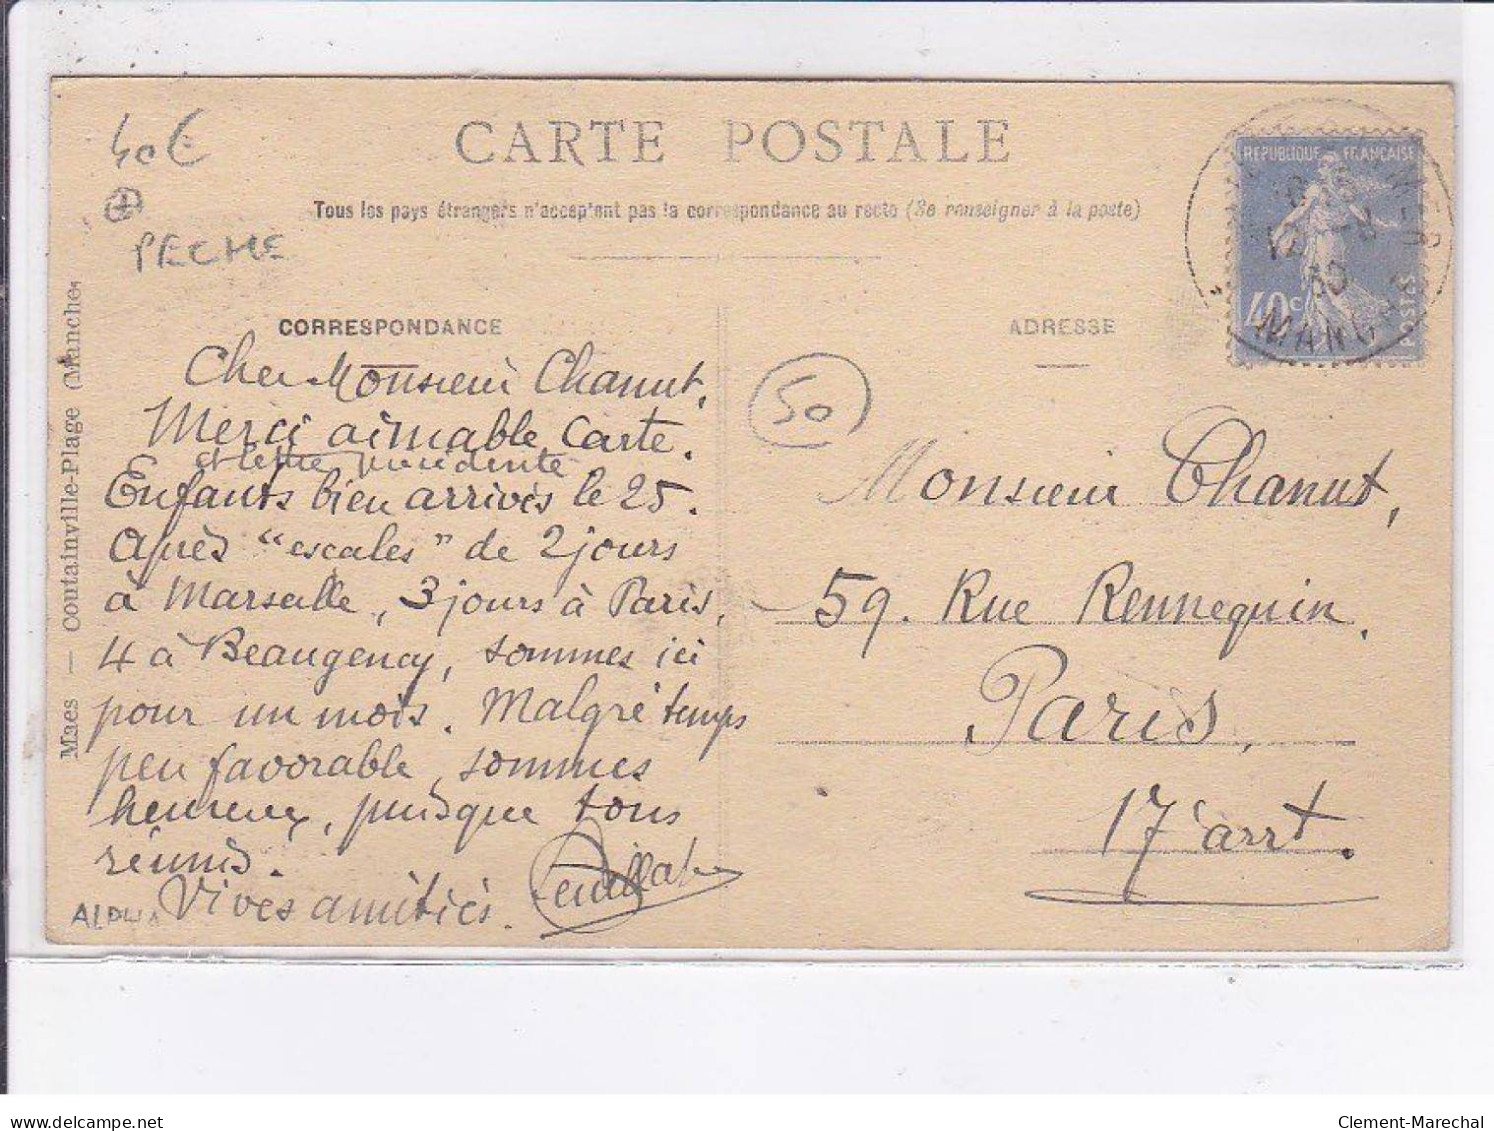 40€
PECHE
CARTE POSTALE
Tous les pays étrangers n'acceptent pas la correspondance au recto (Se renseigner à la poste)
RÉPUBLIQUE FRANÇAISE
40c
POSTES
MANCHE
30
Maes — Coutainville-Plage (Manche)
CORRESPONDANCE
Cher Monsieur Chanut,
Merci aimable carte.
et lettre précédente
Enfants bien arrivés le 25.
Après "escales" de 2 jours
à Marseille, 3 jours à Paris,
4 à Beaugency, sommes ici
pour un mois. Malgré temps
peu favorable, sommes
heureux, puisque tous
réunis.
Vives amitiés.
ALPHA
ADRESSE
50
Monsieur Chanut,
59. Rue Rennequin.
Paris,
17 arrt.
delcampe.net
Clement-Marechal